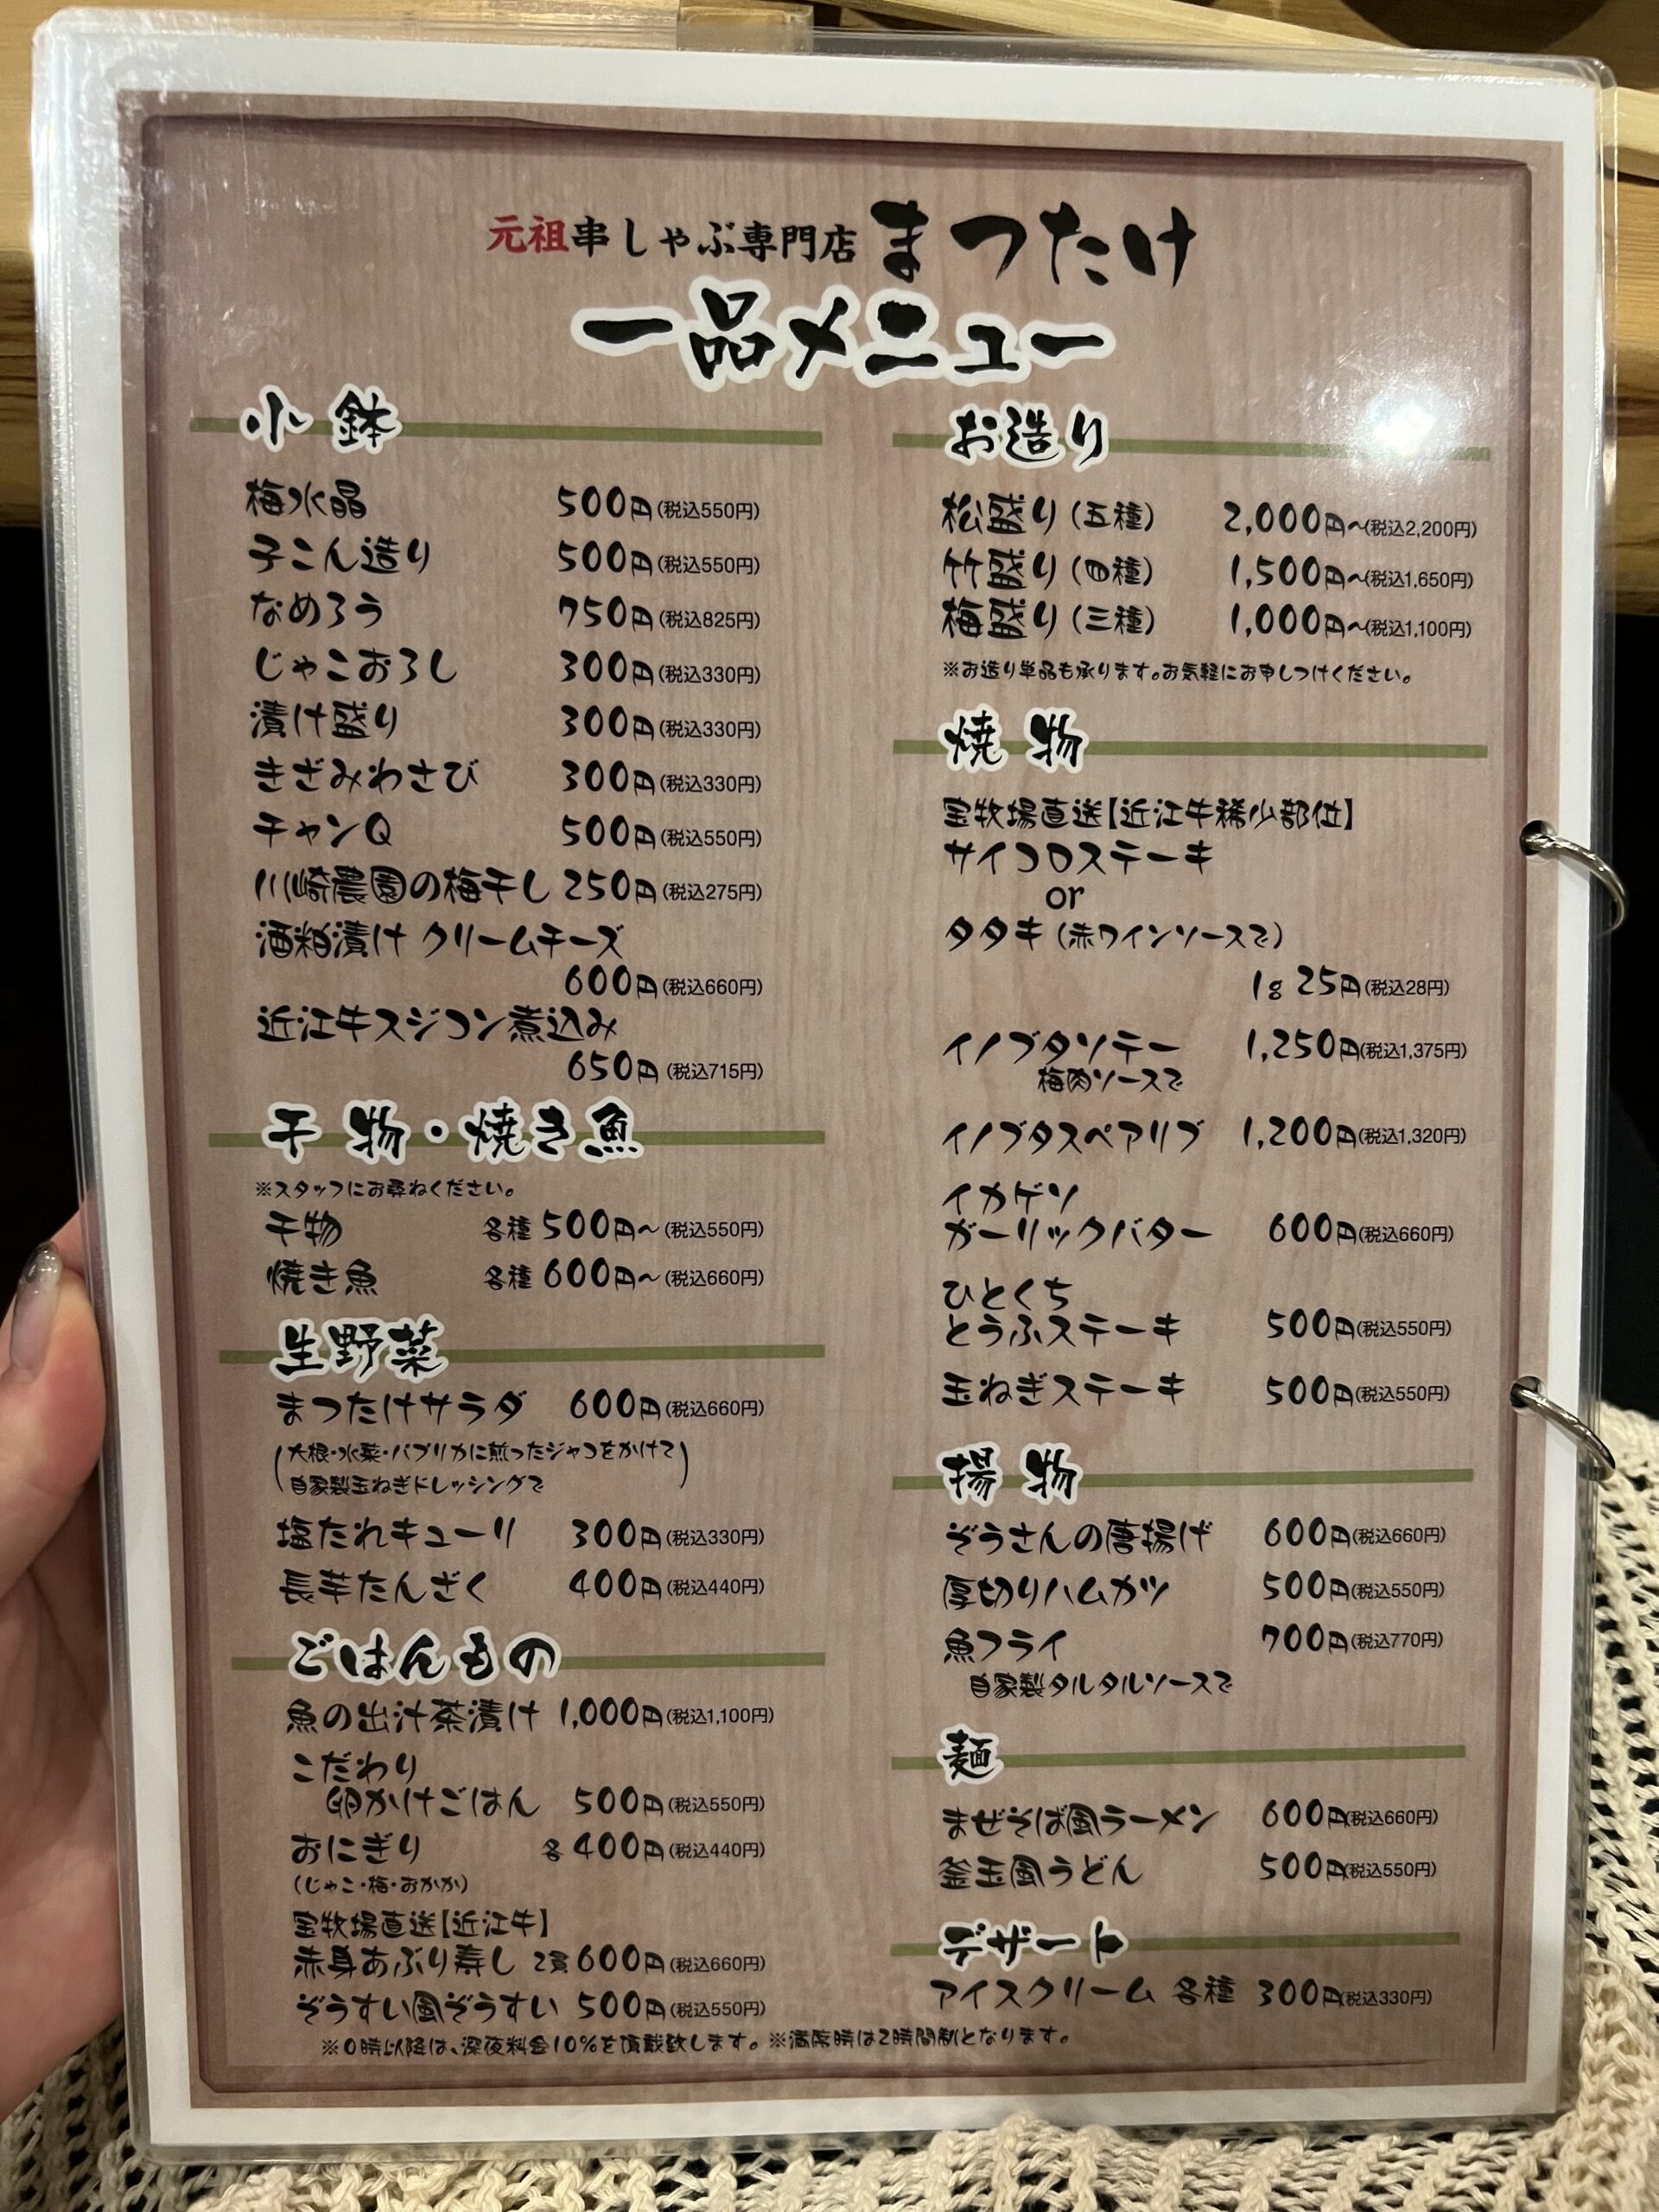 元祖串しゃぶ専門店 まつたけ
一品メニュー
小鉢
梅水晶 500円(税込550円)
子こん造り 500円(税込550円)
なめろう 750円(税込825円)
じゃこおろし 300円(税込330円)
漬け盛り 300円(税込330円)
きざみわさび 300円(税込330円)
チャンQ 500円(税込550円)
川崎農園の梅干し 250円(税込275円)
酒粕漬け クリームチーズ
600円(税込660円)
近江牛スジコン煮込み
650円(税込715円)
干物・焼き魚
※スタッフにお尋ねください。
干物 各種500円〜(税込550円)
焼き魚 各種600円〜(税込660円)
生野菜
まつたけサラダ 600円(税込660円)
(大根・水菜・パプリカに煎ったジャコをかけて
自家製玉ねぎドレッシングで)
塩たれキューリ 300円(税込330円)
長芋たんざく 400円(税込440円)
ごはんもの
魚の出汁茶漬け 1,000円(税込1,100円)
こだわり
卵かけごはん 500円(税込550円)
おにぎり 各400円(税込440円)
(じゃこ・梅・おかか)
宝牧場直送【近江牛】
赤身あぶり寿し 2貫600円(税込660円)
ぞうすい風ぞうすい 500円(税込550円)
お造り
松盛り(五種) 2,000円〜(税込2,200円)
竹盛り(四種) 1,500円〜(税込1,650円)
梅盛り(三種) 1,000円〜(税込1,100円)
※お造り単品も承ります。お気軽にお申しつけください。
焼物
宝牧場直送【近江牛稀少部位】
サイコロステーキ
or
タタキ(赤ワインソースで)
1g 25円(税込28円)
イノブタソテー 1,250円(税込1,375円)
梅肉ソースで
イノブタスペアリブ 1,200円(税込1,320円)
イカゲソ
ガーリックバター 600円(税込660円)
ひとくち
とうふステーキ 500円(税込550円)
玉ねぎステーキ 500円(税込550円)
揚物
ぞうさんの唐揚げ 600円(税込660円)
厚切りハムカツ 500円(税込550円)
魚フライ 700円(税込770円)
自家製タルタルソースで
麺
まぜそば風ラーメン 600円(税込660円)
釜玉風うどん 500円(税込550円)
デザート
アイスクリーム 各種 300円(税込330円)
※0時以降は、深夜料金10%を頂戴致します。※満席時は2時間制となります。